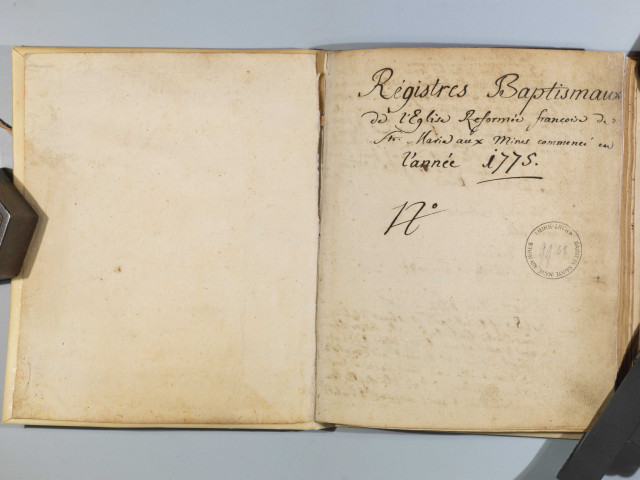 Régistres Baptismaux
de l'Eglise Reformée françoise de
Ste. Marie aux Mines commencé en
l'année 1775.
N°